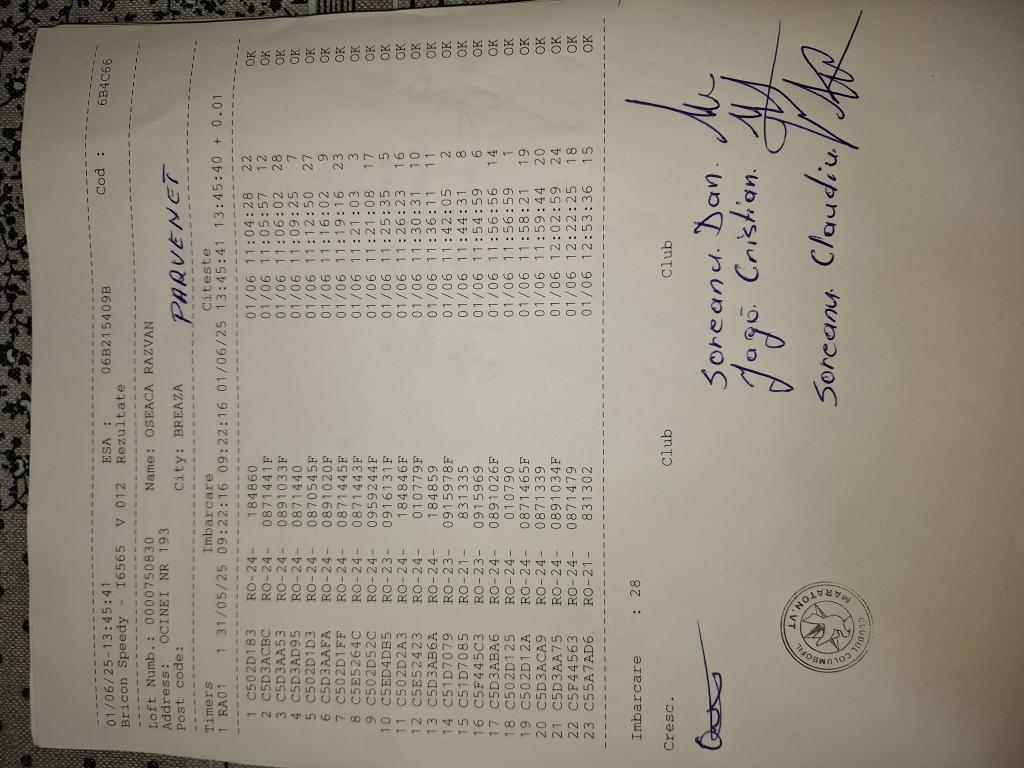 01/06/25-13:45:41 ESA : 06B215409B Cod : 6B4C66
Bricon Speedy - I6565 V 012 Rezultate
Loft Numb.: 0000750830 Name: OSEACA RAZVAN
Address: OCINEI NR 193
Post code: City: BREAZA PARVENET
Timers Imbarcare Citeste
1 RA01 1 31/05/25 09:22:16 09:22:16 01/06/25 13:45:41 13:45:40 + 0.01
1 C502D183 RO-24- 184860 01/06 11:04:28 22 OK
2 C5D3ACBC RO-24- 0871441F 01/06 11:05:57 12 OK
3 C5D3AA53 RO-24- 0891033F 01/06 11:06:02 28 OK
4 C5D3AD95 RO-24- 0871440 01/06 11:09:25 7 OK
5 C502D1D3 RO-24- 0870545F 01/06 11:12:50 27 OK
6 C5D3AAFA RO-24- 0891020F 01/06 11:16:02 9 OK
7 C502D1FF RO-24- 0871445F 01/06 11:19:16 23 OK
8 C5E5264C RO-24- 0871443F 01/06 11:21:03 3 OK
9 C502D52C RO-24- 0959244F 01/06 11:21:08 17 OK
10 C5ED4DB5 RO-23- 0916131F 01/06 11:25:35 5 OK
11 C502D2A3 RO-24- 184846F 01/06 11:26:23 16 OK
12 C5E52423 RO-24- 010779F 01/06 11:30:31 10 OK
13 C5D3AB6A RO-24- 184859 01/06 11:36:11 11 OK
14 C51D7079 RO-23- 0915978F 01/06 11:42:05 2 OK
15 C51D7085 RO-21- 831335 01/06 11:44:31 8 OK
16 C5F445C3 RO-23- 0915969 01/06 11:54:59 6 OK
17 C5D3ABA6 RO-24- 0891026F 01/06 11:56:56 14 OK
18 C502D125 RO-24- 010790 01/06 11:56:59 1 OK
19 C502D12A RO-24- 0871465F 01/06 11:58:21 19 OK
20 C5D3ACA9 RO-24- 0871339 01/06 11:59:44 20 OK
21 C5D3AA75 RO-24- 0891034F 01/06 12:02:59 24 OK
22 C5F44563 RO-24- 0871479 01/06 12:22:25 18 OK
23 C55A7AD6 RO-21- 831302 01/06 12:53:36 15 OK
Imbarcare : 28
Cresc. Club Club
Soreanu. Dan.
Jagō Cristian.
Soreanu Claudiu.
CLUBUL COLUMBOFIL
MARATON.VT